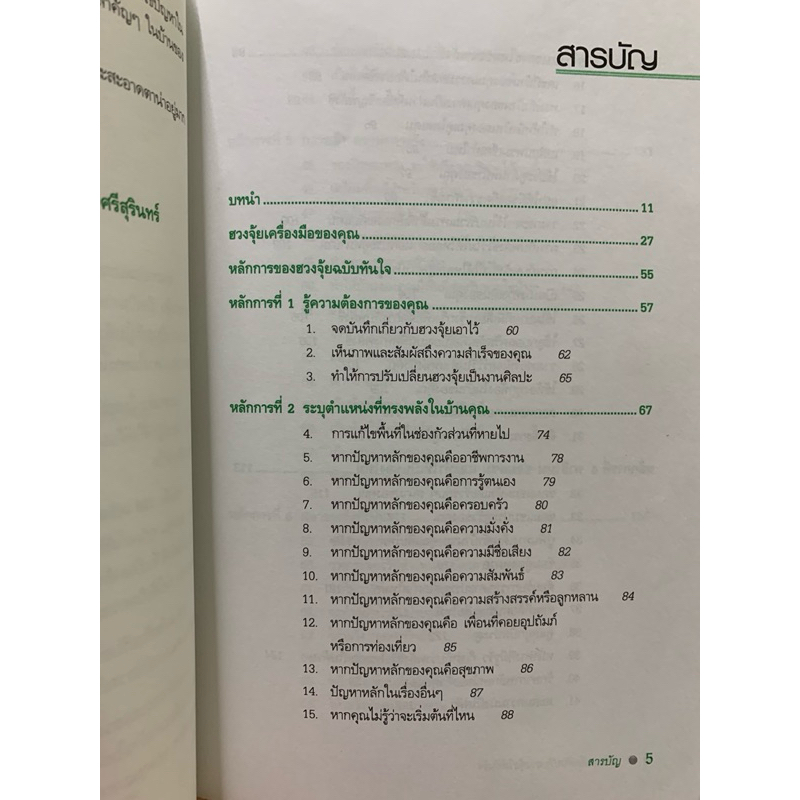 ศรีสุรินทร์
สารบัญ
บทนำ 11
ฮวงจุ้ยเครื่องมือของคุณ 27
หลักการของฮวงจุ้ยฉบับทันใจ 55
หลักการที่ 1 รู้ความต้องการของคุณ 57
1. จดบันทึกเกี่ยวกับฮวงจุ้ยเอาไว้ 60
2. เห็นภาพและสัมผัสถึงความสำเร็จของคุณ 62
3. ทำให้การปรับเปลี่ยนฮวงจุ้ยเป็นงานศิลปะ 65
หลักการที่ 2 ระบุตำแหน่งที่ทรงพลังในบ้านคุณ 67
4. การแก้ไขพื้นที่ในช่องกัวส่วนที่หายไป 74
5. หากปัญหาหลักของคุณคืออาชีพการงาน 78
6. หากปัญหาหลักของคุณคือการรู้ตนเอง 79
7. หากปัญหาหลักของคุณคือครอบครัว 80
8. หากปัญหาหลักของคุณคือความมั่งคั่ง 81
9. หากปัญหาหลักของคุณคือความมีชื่อเสียง 82
10. หากปัญหาหลักของคุณคือความสัมพันธ์ 83
11. หากปัญหาหลักของคุณคือความสร้างสรรค์หรือลูกหลาน 84
12. หากปัญหาหลักของคุณคือ เพื่อนที่คอยอุปถัมภ์
หรือการท่องเที่ยว 85
13. หากปัญหาหลักของคุณคือสุขภาพ 86
14. ปัญหาหลักในเรื่องอื่นๆ 87
15. หากคุณไม่รู้ว่าจะเริ่มต้นที่ไหน 88
สารบัญ 5